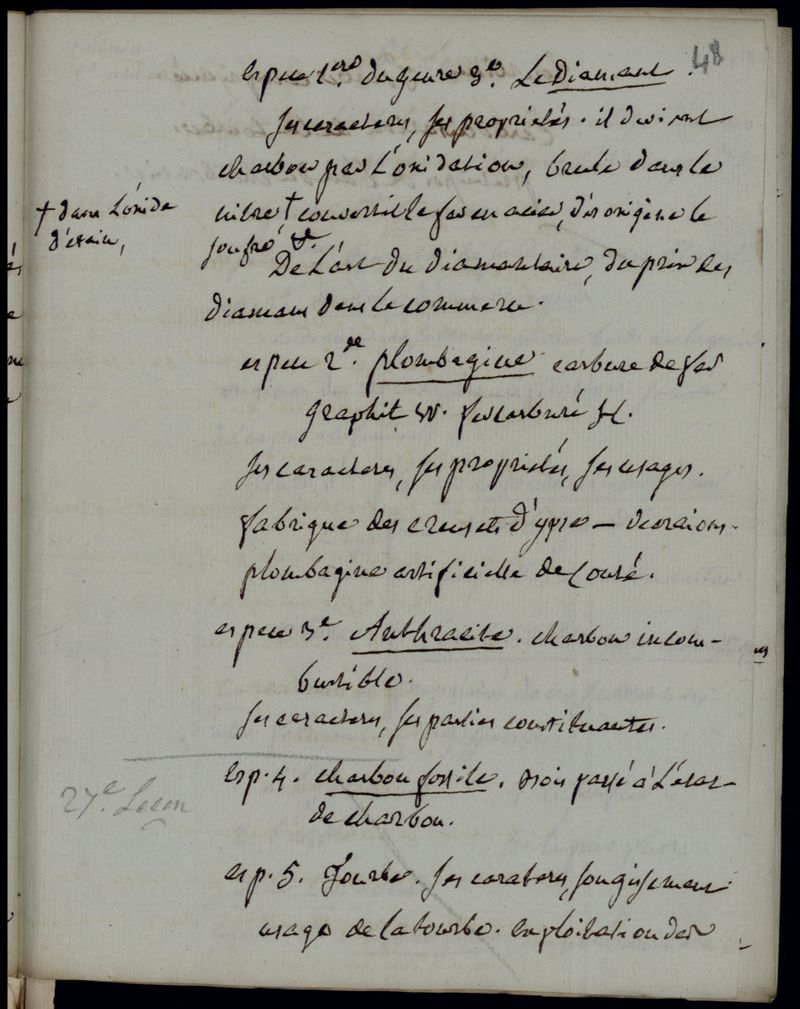 48
espece 1ere. du genre 3e. Le Diamant.
ses caracteres, ses proprietés. il devient
charbon par l'oxidation, brule dans le
nitre, † convertit le fer en acier, désoxigene le
soufre &.
† dans l'oxide
d'etain,
De l'art du diamantaire, du prix des
diamans dans le commerce.
espece 2de. plombagine carbure de fer
graphit W. fer carburé H.
ses caracteres, ses proprietés, ses usages.
fabrique des creusets d'ypse — crayons.
plombagine artificielle de Conté.
espece 3e. Anthracite. charbon incom-
bustible.
ses caracteres, ses parties constituantes.
27e. Leçon
Esp. 4. charbon fossile. bois passé à l'état
de charbon.
esp. 5. Tourbe. ses carateres, son gissement
usage de la tourbe. exploitation des